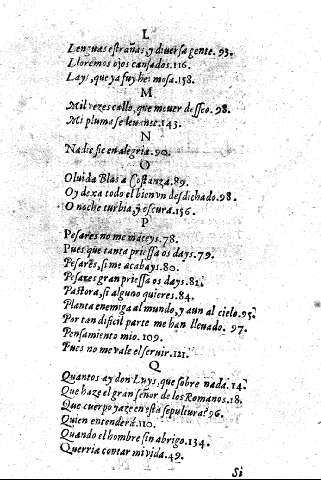 L
Lenguas estrañas, y diuersa gente. 93.
Lloremos ojos cansados. 116.
Lays, que ya fuy hermosa. 158.
M
Mil vezes callo, que mouer desseo. 98.
Mi pluma se leuante. 143.
N
Nadie fie en alegria. 90.
O
Oluida Blas a Costanza. 89.
Oy dexa todo el bien vn desdichado. 98.
O noche turbia, y escura. 156.
P
Pesares no me mateys. 78.
Pues que tanta priessa os days. 79.
Pesares, si me acabays. 80.
Pesares gran priessa os days. 81.
Pastora, si alguno quieres. 84.
Planta enemiga al mundo, y aun al cielo. 95.
Por tan dificil parte me han lleuado. 97.
Pensamiento mio. 109.
Pues no me vale el seruir. 121.
Q
Quantos ay don Luys, que sobre nada. 14.
Que haze el gran señor de los Romanos. 18.
Que cuerpo yaze en esta sepultura? 96.
Quien entenderá. 110.
Quando el hombre sin abrigo. 134.
Querria contar mi vida. 49.
Si